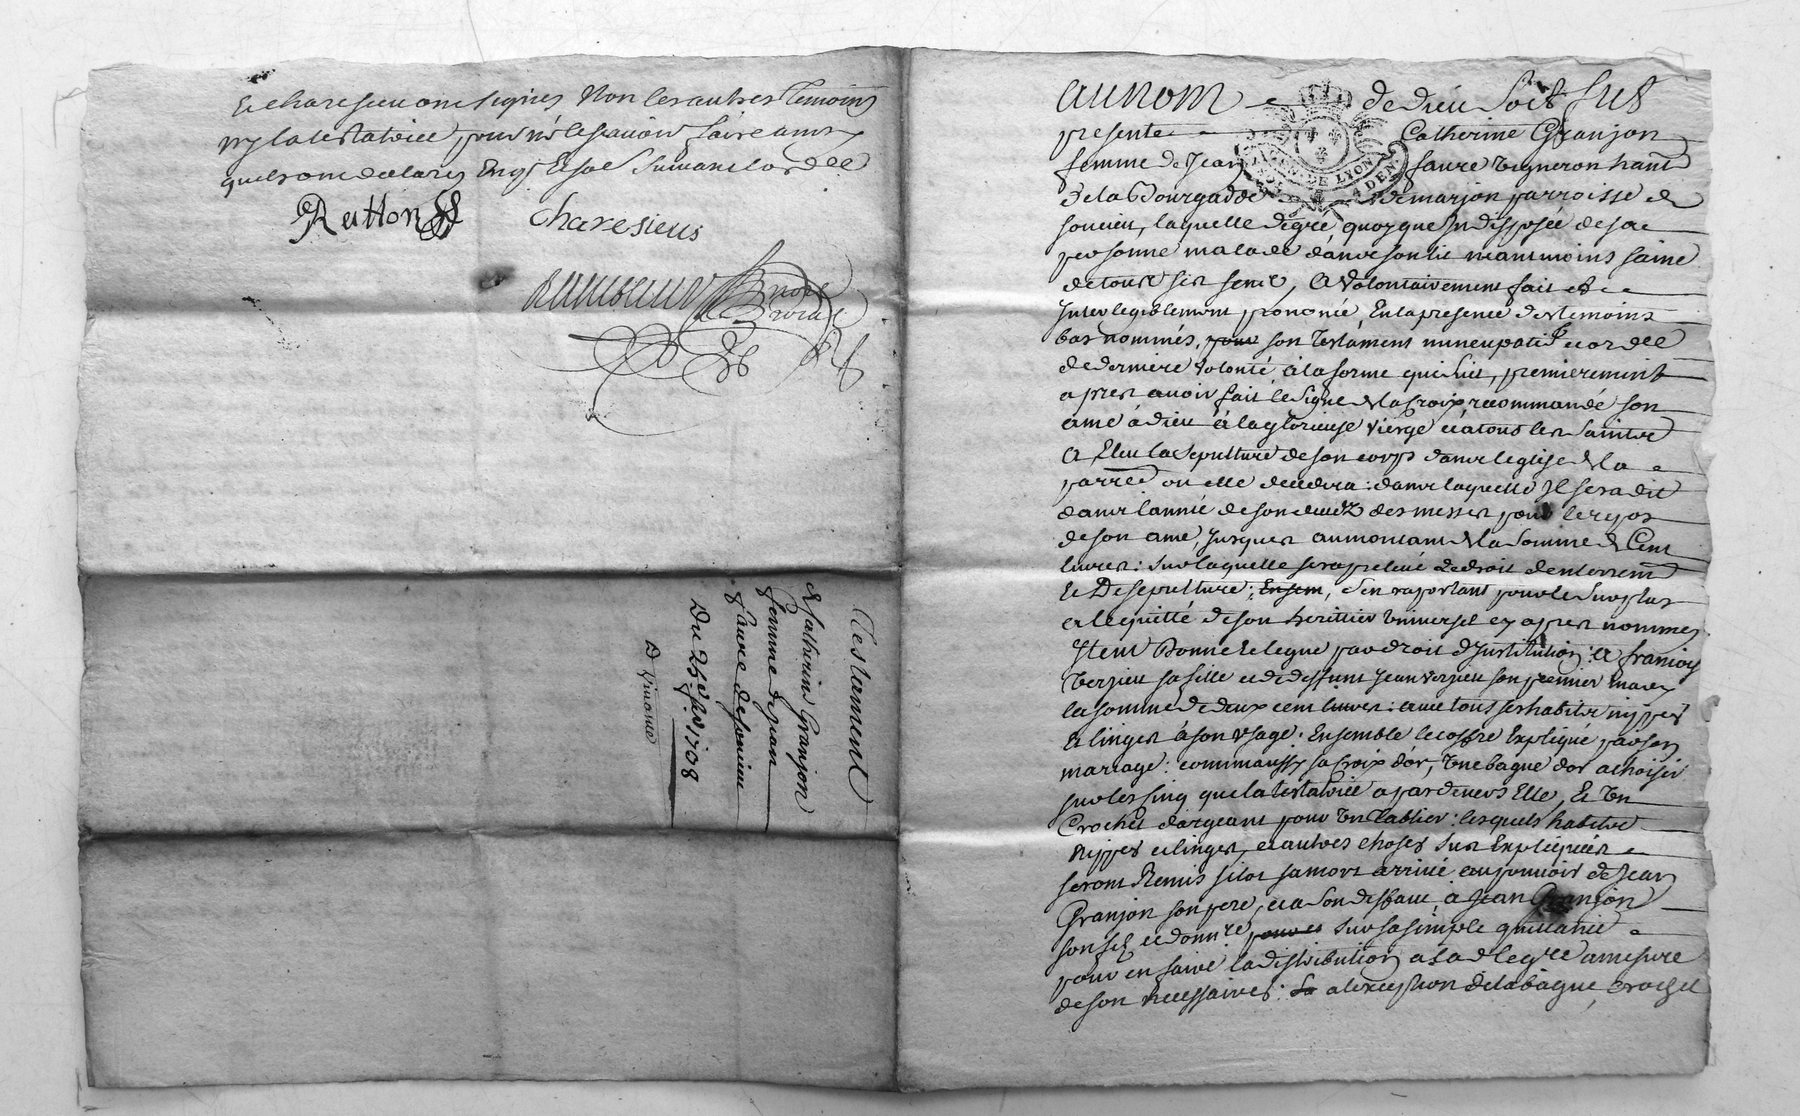 et charesieu ont signés Non les autres temoins
ny la testatrice, pour né le scavoir faire ainsy
Rutton
Charesieus
Testament
de Catherin Granjon
femme de jean
faure de soucieu
Du 25e 1708
au nom de dieu soit fut
presente Catherine Granjon
femme de Jean faure vigneron hant
de la Bourgadde de marjon parroisse de
soucieu, laquelle degré, quoyque Indisposée de sa
personne malade dans son lit neantmoins saine
de tous ses sens, a volontairement fait et
Inteelegiblement prononcé, En la presence des temoins
bas nommés, pour son testament nuncupatif et ordce
de derniere volonté a la forme qui suit, premierement
apres avoir fait le signe de la Croix recommandé son
ame à dieu à la glorieuse vierge et a tous les saints
A Eleu la sepulture de son corps dans leglise de la
parre ou elle decedera : dans laquelle Il sera dit
dans lannée de son decedz des messes pour le repos
de son ame, jusques au montant de la somme de Cent
livres : sur laquelle sera prelevé le droit denterrement
et De sepulture ; Ensem, s'en raportant pour le surplus
a lequitté de son heritier universel cy apres nommes
Item Donne et legue par droit d'Institution : a françoise
verzieu sa fille et de deffunt jean verzieu son premier mary
la somme de deux cent livres : avec tous ses habits nippes
et linges à son usage. Ensemble le coffre Expliqué par son
mariage : comm'aussy sa croix d'or, une bague d'or a choisir
sur les sinq que la testatrice a par devers Elle, Et un
Crochet d'argeant pour un tablier : lesquels habits
nippes et linges, et autres choses sus Expliquées
seront Remis sitot sa mort arrivée au pouvoir de Jean
Granjon son pere, et a son deffaut, à Jean Granjon
son fils et donnée pour sur sa simple quittance
pour en faire la distribution a sad legre a mesure
de son necessaires : a lexception de la bague, crochet